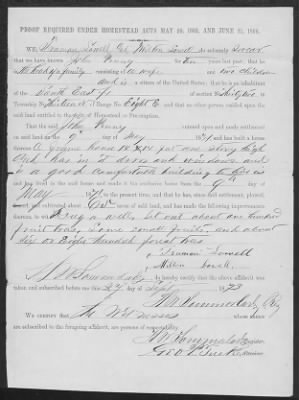 PROOF REQUIRED UNDER HOMESTEAD ACTS MAY 20, 1862, AND JUNE 21, 1866.
We, Truman Lowell & Milton Lowell do solemnly swear
that we have known John Penny for Ten years last past; that he
is head of a family consisting of a wife and two children
and is a citizen of the United States; that he is an inhabitant
of the South East ¼ of section
Township No. Thirteen N of Range No. Eight E and that no other person resided upon the said
land entitled to the right of Homestead or Pre-emption.
That the said John Penny entered upon and made settlement
on said land on the 6 day of May
A frame house 12 x 14 feet one story high
and has in it doors and windows and
is a good comfortable building to live in
and has lived in the said house and made it his exclusive home from the day of
May to the present time, and that he has, since said settlement, plowed,
and cultivated about acres of said land, and has made the following improvements
thereon, to wit: Dug a well, set out about one hundred
fruit trees, some small fruits, and about
six or Eight hundred forest trees
Truman Lowell
Milton Lowell
I, do hereby certify that the above affidavit was
taken and subscribed before me this 27 day of Sept 1873
We certify that The Witnesses whose names
are subscribed to the foregoing affidavit, are persons of respectability.
Register
Receiver